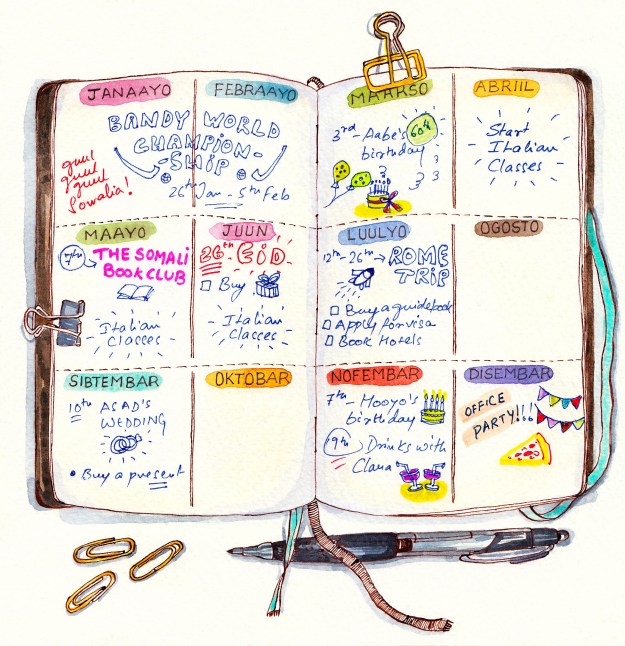 JANAAYO
FEBRAAYO
BANDY WORLD
CHAMPION-
-SHIP
26th Jan - 5th Feb
guul
guul
guul
Somalia!
MAARSO
3rd - Aabe's
birthday
60th
ABRIIL
Start
Italian
Classes
MAAYO
THE SOMALI
BOOK CLUB
Italian
Classes
JUUN
26th - EID
Buy
Italian
Classes
LUULYO
12th - 26th → ROME
TRIP
Buy a guidebook
Apply for visa
Book Hotels
OGOSTO
SIBTEMBAR
10th ASAD'S
WEDDING
• Buy a present
OKTOBAR
NOFEMBAR
7th - Hooyo's
birthday
19th Drinks with
Clara
DISEMBAR
OFFICE
PARTY!!!